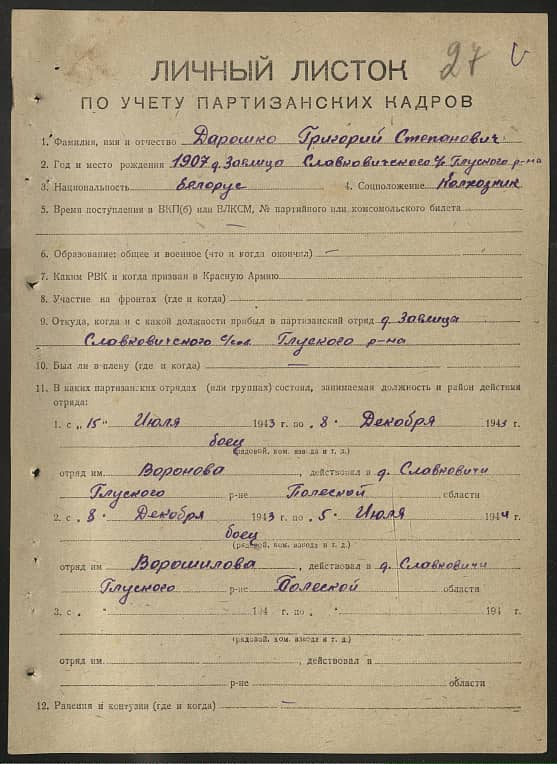 27 V
ЛИЧНЫЙ ЛИСТОК
ПО УЧЕТУ ПАРТИЗАНСКИХ КАДРОВ
1. Фамилия, имя и отчество Дарошко Григорий Степанович
2. Год и место рождения 1907 д. Завлица Славковичского с/с Глуского р-на
3. Национальность Белорус 4. Соцположение Колхозник
5. Время поступления в ВКП(б) или ВЛКСМ, № партийного или комсомольского билета
6. Образование: общее и военное (что и когда окончил) —
7. Каким РВК и когда призван в Красную Армию
8. Участие на фронтах (где и когда)
9. Откуда, когда и с какой должности прибыл в партизанский отряд д. Завлица
Славковичского с/сов. Глуского р-на
10. Был ли в плену (где и когда) —
11. В каких партизанских отрядах (или группах) состоял, занимаемая должность и район действия
отряда:
1. с „15" Июля 1943 г. по „8" Декабря 1943 г.
боец
(рядовой, ком. взвода и т. д.)
отряд им. Воронова, действовал в д. Славковичи
Глуского р-не Полеской области
2. с „8" Декабря 1943 г. по „5" Июля 1944 г.
боец
(рядовой, ком. взвода и т. д.)
отряд им. Ворошилова, действовал в д. Славковичи
Глуского р-не Полеской области
3. с „ " 194 г. по „ " 194 г.
(рядовой, ком. взвода и т. д.)
отряд им. , действовал в
р-не области
12. Ранения и контузии (где и когда) —